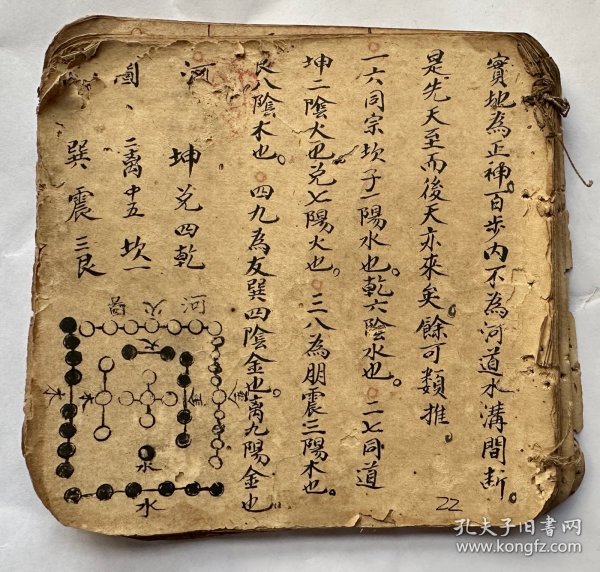 實地為正神。百步内不為河道水溝間斷。
是先天至而後天亦來矣。餘可類推
一六同宗坎子一陽水也。乾六陰水也。二七同道
坤二陰火也兑七陽火也。三八為朋震三陽木也。
艮八陰木也。四九為友巽四陰金也。离九陽金也
河 坤兑四乾
圖 二离中五 坎一
巽震三艮
河
火
水
水
22
孔夫子旧書网
www.kongfz.com